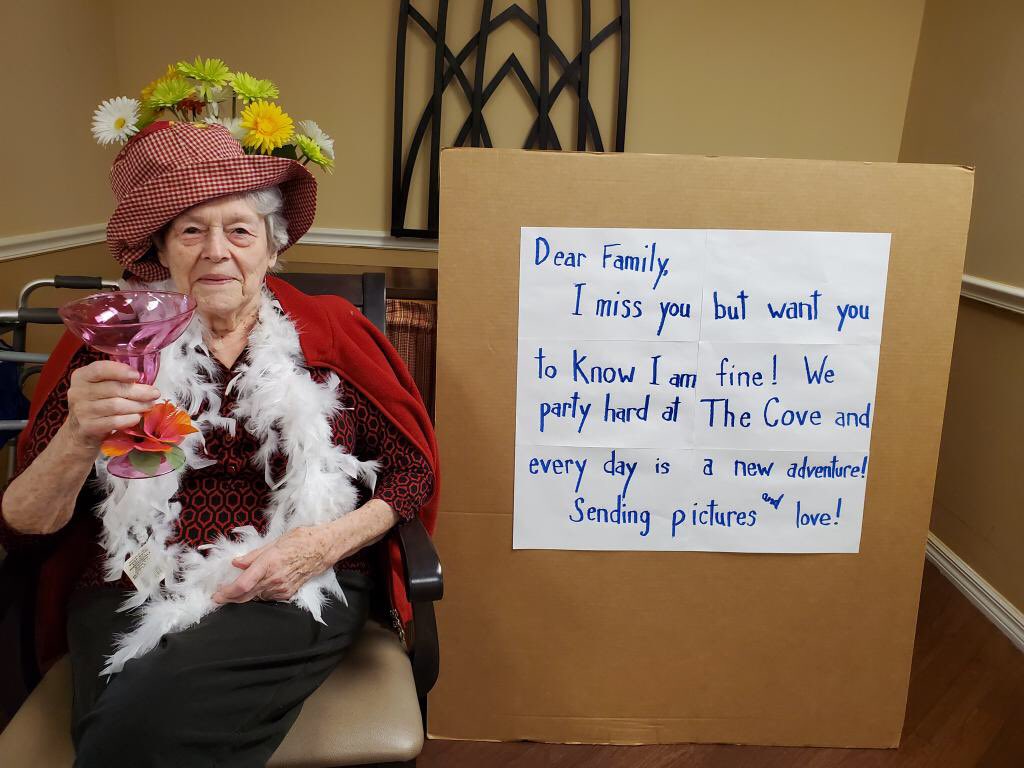 Dear Family,
I miss you but want you
to Know I am fine! We
party hard at The Cove and
every day is a new adventure!
Sending pictures and love!